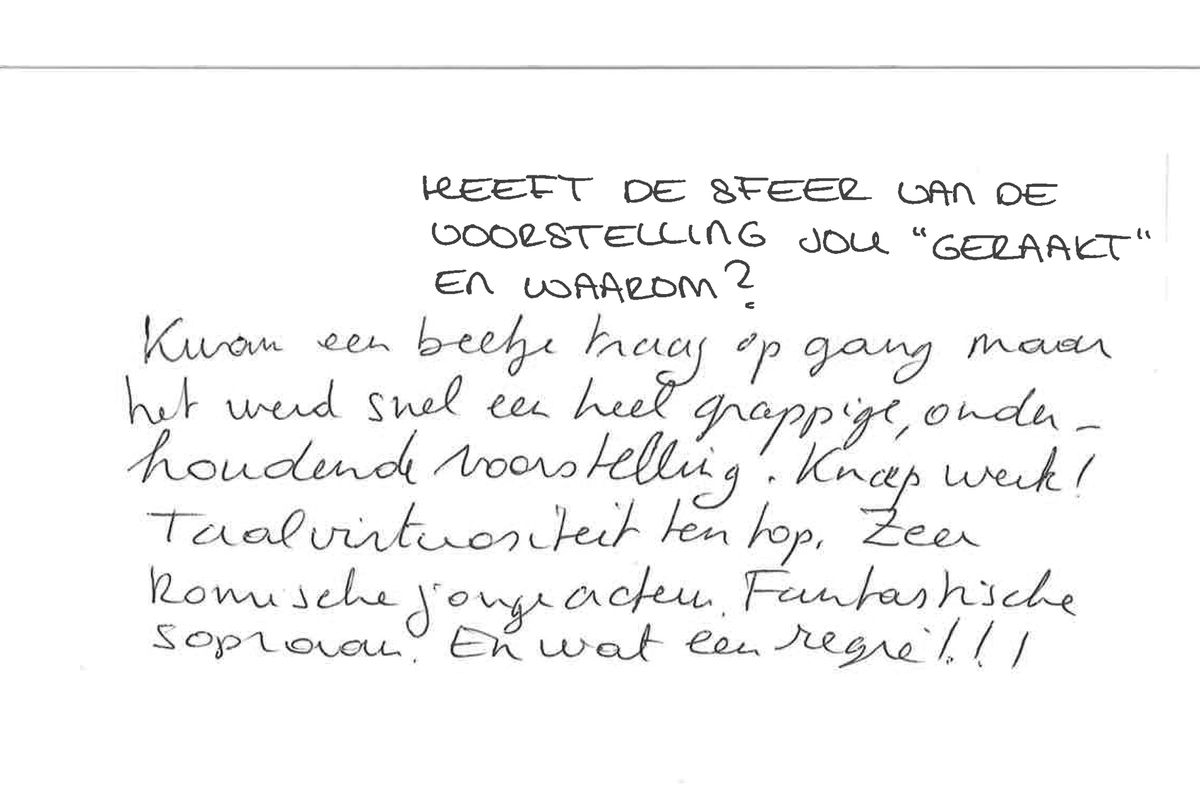 HEEFT DE SFEER VAN DE
VOORSTELLING JOU "GERAAKT"
EN WAAROM?
Kwam een beetje traag op gang maar
het werd snel een heel grappige, onder-
houdende voorstelling. Knap werk!
Taalvirtuositeit ten top. Zeer
komische jonge acteur. Fantastische
sopraan. En wat een regie!!!